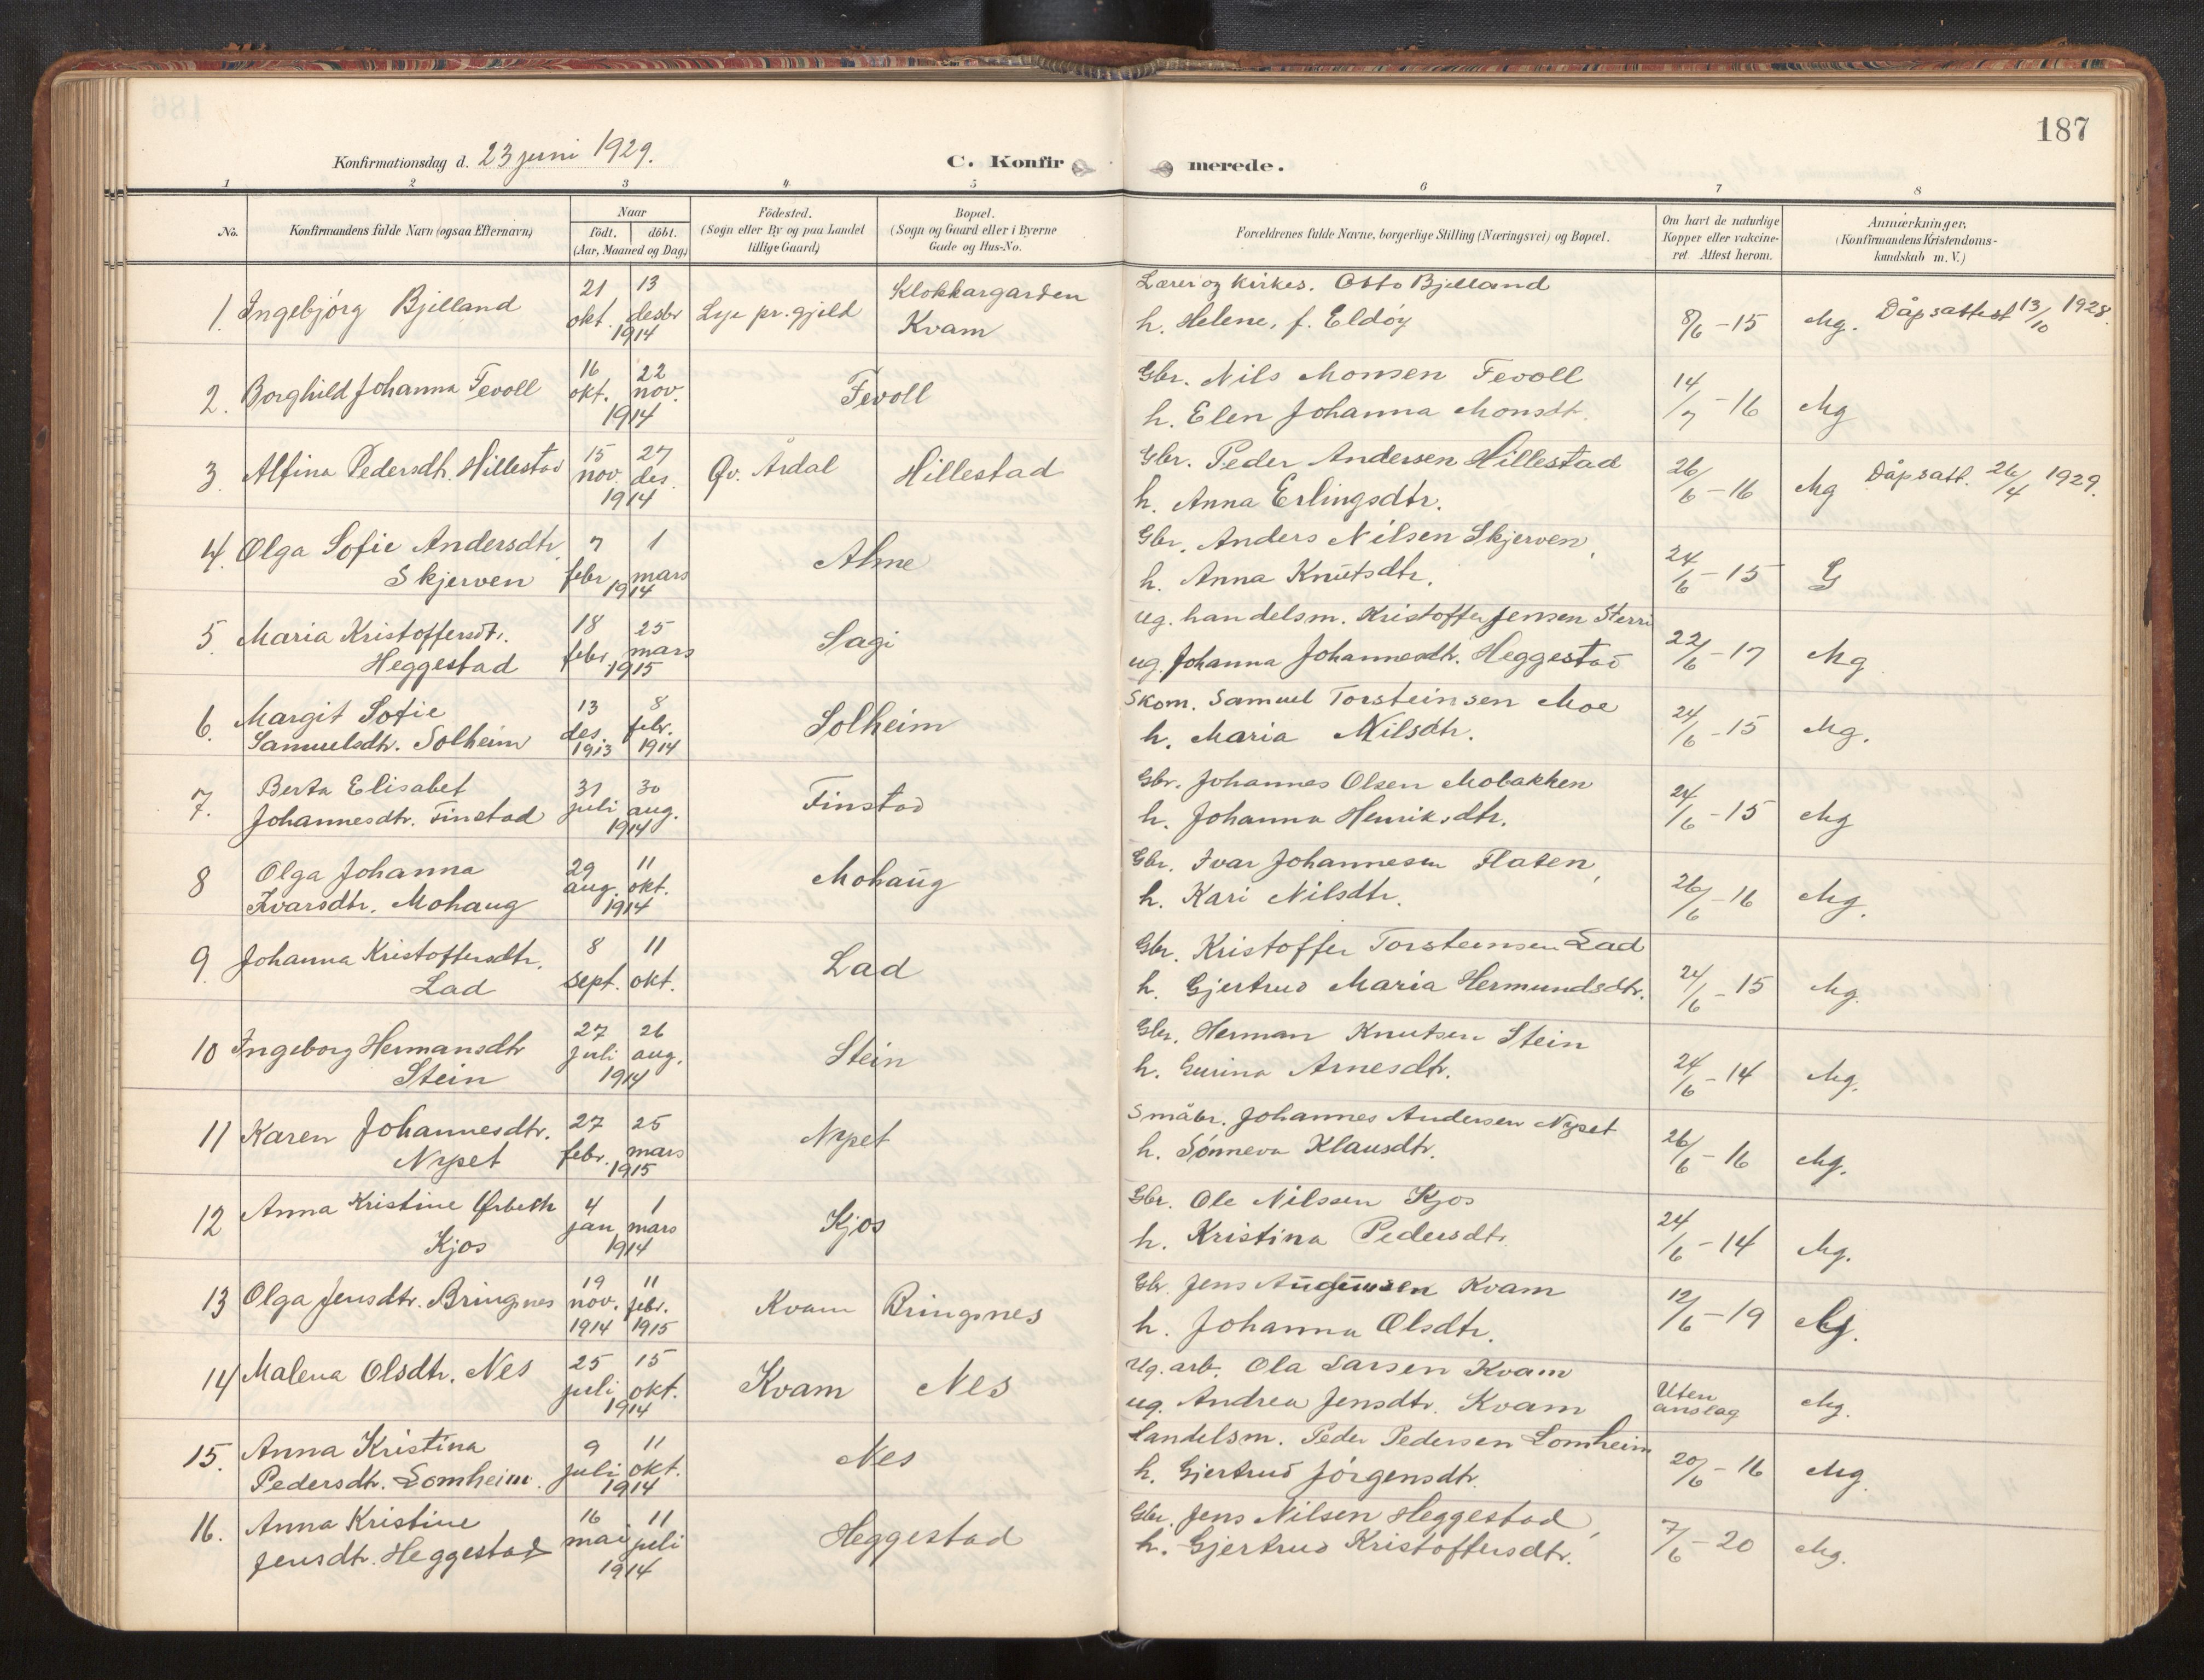 187
Konfirmationsdag d. 23 juni 1929.
C. Konfir merede.
1 2 3 4 5 6 7 8
No.
Konfirmandens fulde Navn (ogsaa Efternavn)
Naar
födt. döbt.
(Aar, Maaned og Dag)
Födested.
(Sogn eller By og paa Landet
tillige Gaard)
Bopæl.
(Sogn og Gaard eller i Byerne
Gade og Hus-No.
Forældrenes fulde Navne, borgerlige Stilling (Næringsvei) og Bopæl.
Om havt de naturlige
Kopper eller vakcine-
ret. Attest herom.
Anmærkninger.
(Konfirmandens Kristendoms-
kundskab m. V.)
1. Ingebjörg Bjelland
21 okt. 13 desbr 1914
Lye pr.gjeld
Klokkargarden
Kvam
Lærer og kirkes. Otto Bjelland
h. Helene, f. Eldöy
8/6 - 15
Mg. Dåpsattest 13/10 1928.
2. Borghild Johanna Fevoll
16 okt. 22 nov. 1914
Fevoll
Gbr. Nils Monsen Fevoll
h. Elen Johanna Monsdtr.
14/7 - 16
Mg
3. Alfina Pedersdtr. Hillestad
15 nov. 27 des. 1914
Øv. Årdal
Hillestad
Gbr. Peder Andersen Hillestad
h. Anna Erlingsdtr.
26/6 - 16
Mg Dåpsatt. 26/4 1929.
4. Olga Sofie Andersdtr.
Skjerven
7 febr 1 mars 1914
Alme
Gbr. Anders Nilsen Skjerven,
h. Anna Knutsdtr.
24/6 - 15
G
5. Maria Kristoffersdtr.
Heggestad
18 febr. 25 mars 1915
Sagi
ug. handelsm. Kristoffer Jensen Sterri
ug. Johanna Johannesdtr. Heggestad
22/6 - 17
Mg
6. Margit Sofie
Samuelsdtr. Solheim
13 des. 1913 8 febr. 1914
Solheim
Skom. Samuel Torsteinsen Moe
h. Maria Nilsdtr.
24/6 - 15
Mg.
7. Berta Elisabet
Johannesdtr. Finstad
31 juli 30 aug. 1914
Finstad
Gbr. Johannes Olsen Mobakken
h. Johanna Henriksdtr.
24/6 - 15
Mg
8 Olga Johanna
Ivarsdtr. Mohaug
29 aug. 11 okt. 1914
Mohaug
Gbr. Ivar Johannesen Flaten,
h. Kari Nilsdtr.
26/6 - 16
Mg.
9. Johanna Kristoffersdtr.
Lad
8 sept. 11 okt.
Lad
Gbr. Kristoffer Torsteinsen Lad
h. Gjertrud Maria Hermundsdtr.
24/6 - 15
Mg.
10 Ingeborg Hermansdtr
Stein
27 juli 26 aug. 1914
Stein
Gbr. Herman Knutsen Stein
h. Gurina Arnesdtr.
24/6 - 14
Mg.
11 Karen Johannesdtr.
Nypet
27 febr. 25 mars 1915
Nypet
Småbr. Johannes Andersen Nypet
h. Sönneva Klausdtr.
26/6 - 16
Mg.
12 Anna Kristine
Kjos
4 jan 1 mars 1914
Kjos
Gbr. Ole Nilssen Kjos
h. Kristina Pedersdtr
24/6 - 14
Mg.
13 Olga Jensdtr. Bringsnes
19 nov. 1914 11 febr. 1915
Kvam
Bringsnes
Gbr. Jens Augunsen Kvam
h. Johanna Olsdtr.
12/6 - 19
Mg.
14 Malena Olsdtr. Nes
25 juli 15 okt. 1914
Kvam
Nes
Ug. arb. Ola Larsen Kvam
ug. Andrea Jensdtr. Kvam
Uten
anslag
Mg.
15. Anna Kristina
Pedersdtr. Lomheim.
9 juli 11 okt. 1914
Nes
Landelsm. Peder Pedersen Lomheim
h. Gjertrud Jörgensdtr.
20/6 - 16
Mg.
16. Anna Kristine
Jensdtr. Heggestad
16 mai 11 juli 1914
Heggestad
Gbr. Jens Nilsen Heggestad,
h. Gjertrud Kristoffersdtr.
7/6 - 20
Mg.